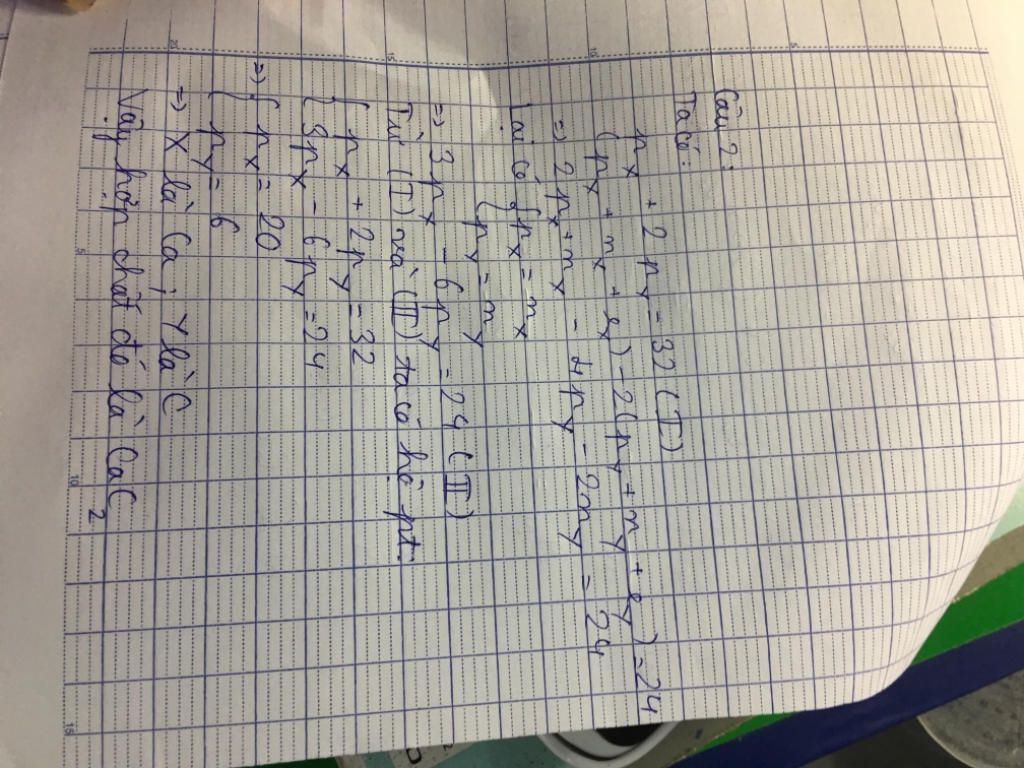 Câu 2:
Ta có:
px + 2py = 32 (I)
(px + mx + ex) - 2(py + my + ey) = 24
=> 2px + mx - 4py - 2my = 24
Lại có { px = mx
{ py = my
=> 3px - 6py = 24 (II)
Từ (I) và (II) ta có hệ pt:
{ px + 2py = 32
{ 3px - 6py = 24
=> { px = 20
{ py = 6
=> X là Ca; Y là C
Vậy hợp chất đó là CaC2